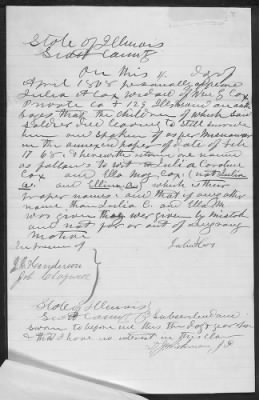 State of Illinois
Scott County
On this 11 day of
April 1868 personally appeared
Julia A Cox widow of Wm G Cox
Private Co 129 Ills and on oath
says that the children of which said
Soldier died leaving to still survive
him are spoken of as per
in the annexed paper of date of Feb
17 68 & herewith
as follows to wit Julia Caroline
Cox and Ella May Cox (not Julia
A. and Ellen A.) which is their
proper names and that if any other
name than Julia C. and Ella M.
was given they wer given by mistak
and not for or out of any wrong
motive
In presence of
J. M. Henderson
State of Illinois
Scott County Subscribed and
sworn to before me this the day & year
& that I have no interest in this claim